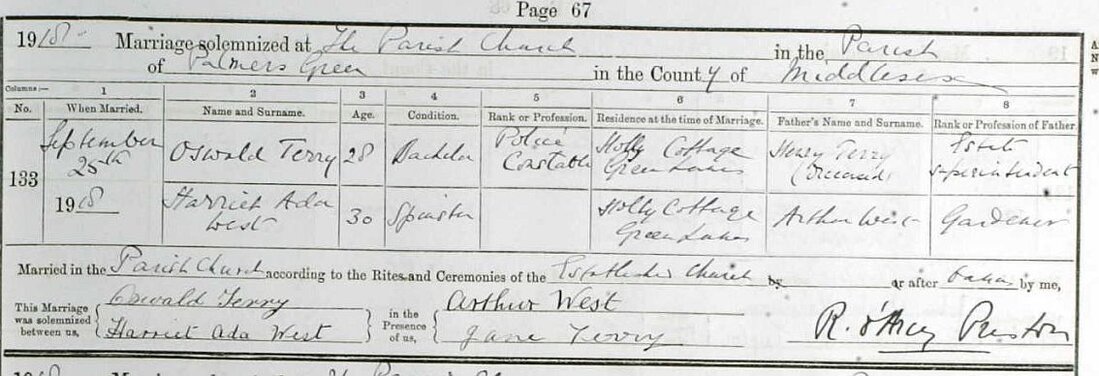 Page 67
1918 Marriage solemnized at The Parish Church in the Parish
of Palmers Green in the County of Middlesex
Columns :— 1 2 3 4 5 6 7 8
No. When Married. Name and Surname. Age. Condition. Rank or Profession. Residence at the time of Marriage. Father's Name and Surname. Rank or Profession of Father.
133
September 25th 1918
Oswald Terry 28 Bachelor Police Constable Holly Cottage Green Lanes Henry Terry (deceased) Estate Superintendent
Harriet Ada West 30 Spinster Holly Cottage Green Lanes Arthur West Gardener
Married in the Parish Church according to the Rites and Ceremonies of the Established Church by or after Banns by me,
This Marriage was solemnized between us,
Oswald Terry
Harriet Ada West
in the Presence of us,
Arthur West
Jane Terry
R. Preston